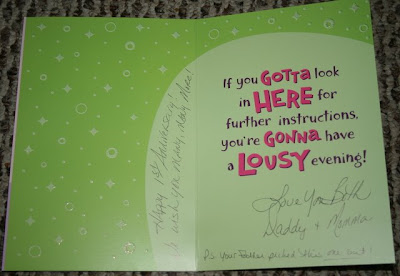 Happy 1st Anniversary!
& wish you many, many More!
If you GOTTA look
in HERE for
further instructions,
you're GONNA have
a LOUSY evening!
Love You Both
Daddy + Momma
P.s. Your Father picked this one out!